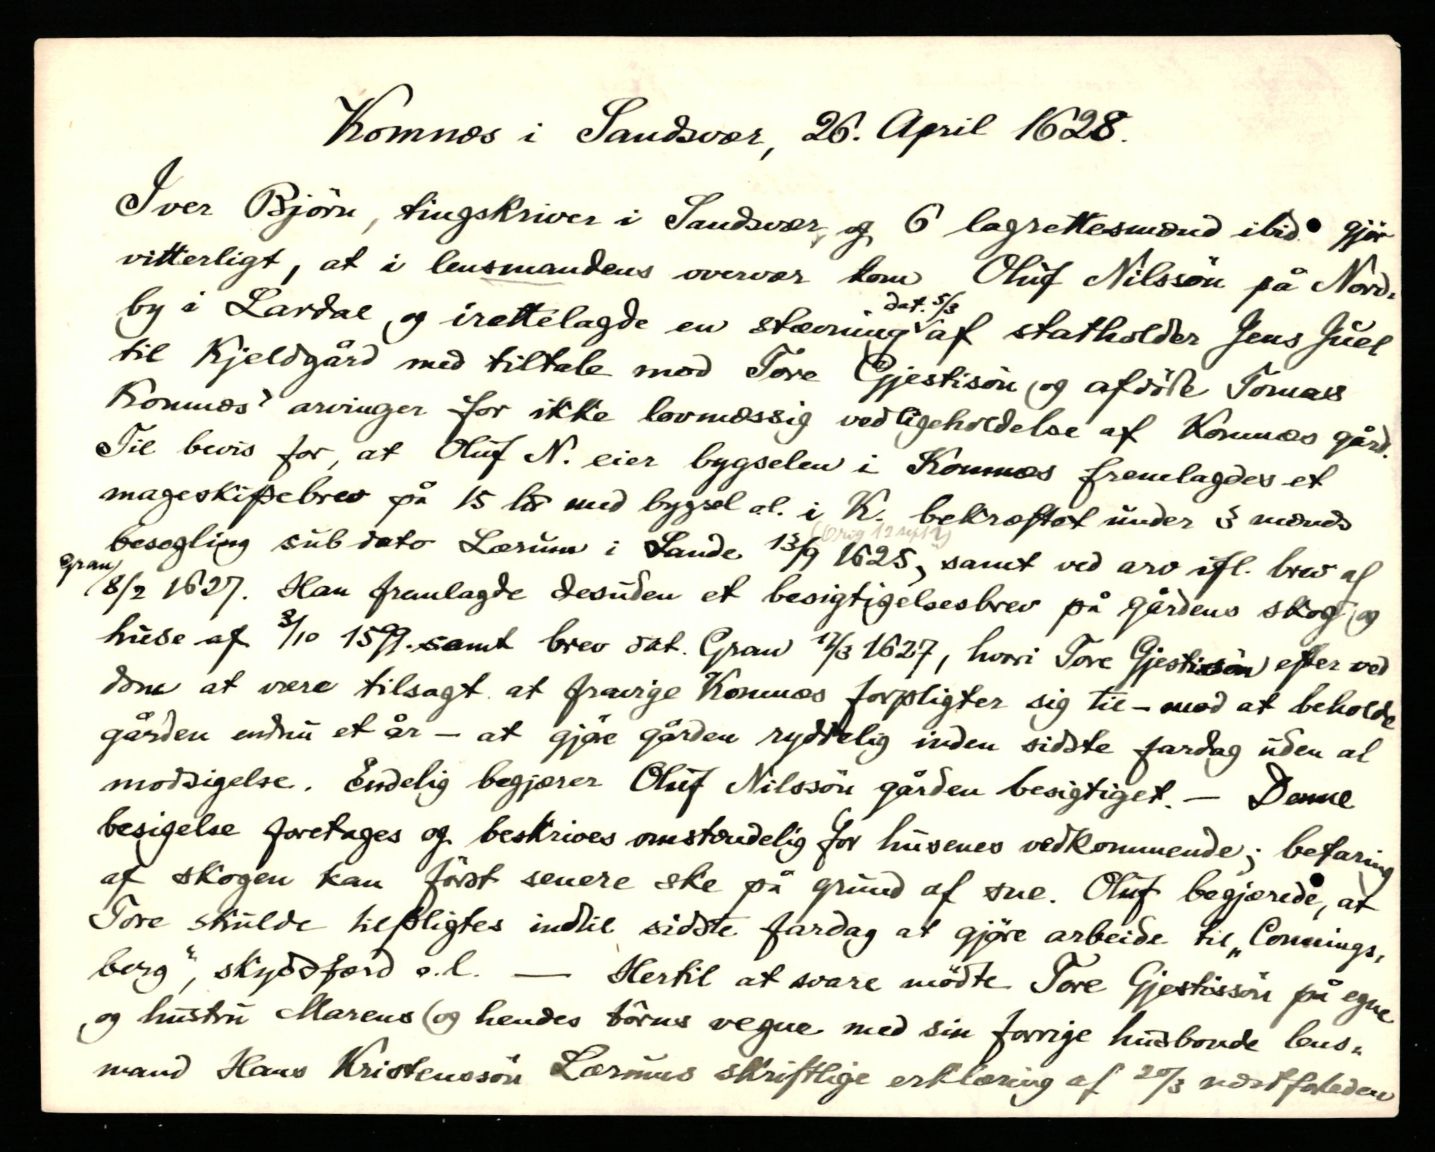 Komnes i Sandsvær, 26. April 1628.
Iver Björn, tingskriver i Sandsvær og 6 lagrettesmænd ibid. gjör
vitterligt, at i lensmandens overvær kom Oluf Nilssön på Nord-
by i Lardal og irettelagde en stævning dat. 5/3 af statholder Jens Juel
til Kjeldgård med tiltale mod Tore Gjestisön og afdöde Tomas
Komnes' arvinger for ikke lovmæssig vedligeholdelse af Komnæs gård.
Til bevis for, at Oluf N. eier bygselen i Komnæs fremlagdes et
mageskiftebrev på 15 med bygsel al. i K. bekræftet under 3 mænds
(Orig 12 sept)
besegling sub dato Lærum i Sande 13/9 1625, samt ved arv ifl. brev af
Gran
8/2 1627. Han fremlagde desuden et besigtigelsesbrev på gårdens skog og
huse af 3/10 1599. samt brev dat. Gran 12/3 1627, hvori Tore Gjestissön efter ved
dom at være tilsagt at fravige Komnæs forpligter sig til - mod at beholde
gården endnu et år - at gjöre gården ryddelig inden sidste fardag uden al
modsigelse. Endelig begjærer Oluf Nilssön gården besigtiget. — Denne
besigelse foretages og beskrives omstændelig for husenes vedkommende; befaring
af skogen kan först senere ske på grund af sne. Oluf begjærede, at
Tore skulde tilpligtes indtil sidste fardag at gjöre arbeide til „Connings-
berg", skydsfærd o.l. — Hertil at svare mödte Tore Gjestissön på egne
og hustru Marens (og hendes börns vegne med sin forrige husbonde lens-
mand Hans Kristenssön Lærums skriftlige erklæring af 20/3 næstforleden